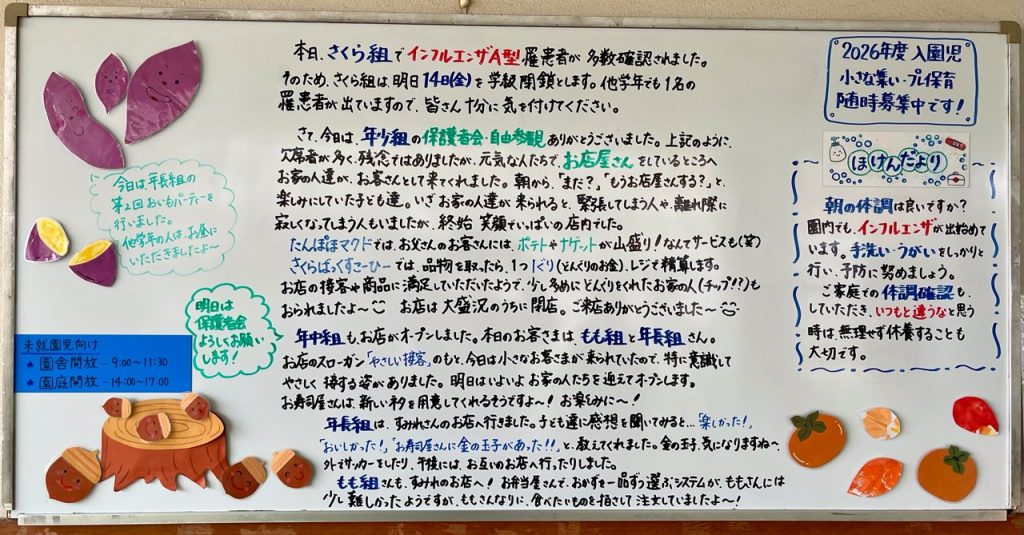 本日、さくら組でインフルエンザA型罹患者が多数確認されました。
そのため、さくら組は明日14日(金)を学級閉鎖とします。他学年でも1名の
罹患者が出ていますので、皆さん十分に気を付けてください。
さて、今日は、年少組の保護者会・自由参観ありがとうございました。上記のように
欠席者が多く、残念ではありましたが、元気な人たちで、お店屋さんをしているところへ
お家の人達が、お客さんとして来てくれました。朝から、「まだ?」、「もうお店屋さんする?」と、
楽しみにしていた子ども達。いざお家の人達が来られると、緊張してしまう人や、離れ際に
寂しくなってしまう人もいましたが、終始笑顔でいっぱいの店内でした。
たんぽぽマクドでは、お父さんのお客さんには、ポテトやナゲットが山盛り!なんてサービスも(笑)
さくらばっくすこーひーでは、品物を取ったら、1つ1ぐり(どんぐりのお金)、レジで精算します。
お店の接客や商品に満足していただいたようで、少し多めにどんぐりをくれたお客の人(チップ!?)も
おられましたよ〜 お店は大盛況のうちに閉店。ご来店ありがとうございました〜
年中組も、お店がオープンしました。本日のお客さまは、もも組と年長組さん。
お店のスローガン「やさしい接客」のもと、今日は小さなお客さまが来られていたので、特に意識して
やさしく接する姿がありました。明日はいよいよお家の人たちを迎えてオープンします。
お寿司屋さんは、新しいネタを用意してくれるそうですよ〜!お楽しみに〜!
年長組は、すみれさんのお店へ行きました。子ども達に感想を聞いてみると…「楽しかった!」
「おいしかった!」、「お寿司屋さんに金の玉子があった!!」と、教えてくれました。金の玉子、気になりますね〜
外でサッカーをしたり、午後には、お互いのお店へ行ったりしました。
もも組さんも、すみれのお店へ!お弁当屋さんで、おかずを一品ずつ選ぶシステムが、ももさんには
少し難しかったようですが、ももさんなりに、食べたいものを指さして注文していましたよ〜!
今日は、年長組の
第2回おいもパーティーを
行いました。
他学年の人は、お昼に
いただきましたよ〜
明日は
保護者会
よろしくお願い
します!
未就園児向け
★ 園舎開放 - 9:00〜11:30
★ 園庭開放 - 14:00〜17:00
2026年度 入園児
小さな集い・プレ保育
随時募集中です!
ほけんだより
朝の体調は良いですか?
園内でも、インフルエンザが出始めて
います。手洗い・うがいをしっかりと
行い、予防に努めましょう。
ご家庭での体調確認も、
していただき、いつもと違うなと思う
時は、無理せず休養することも
大切です。